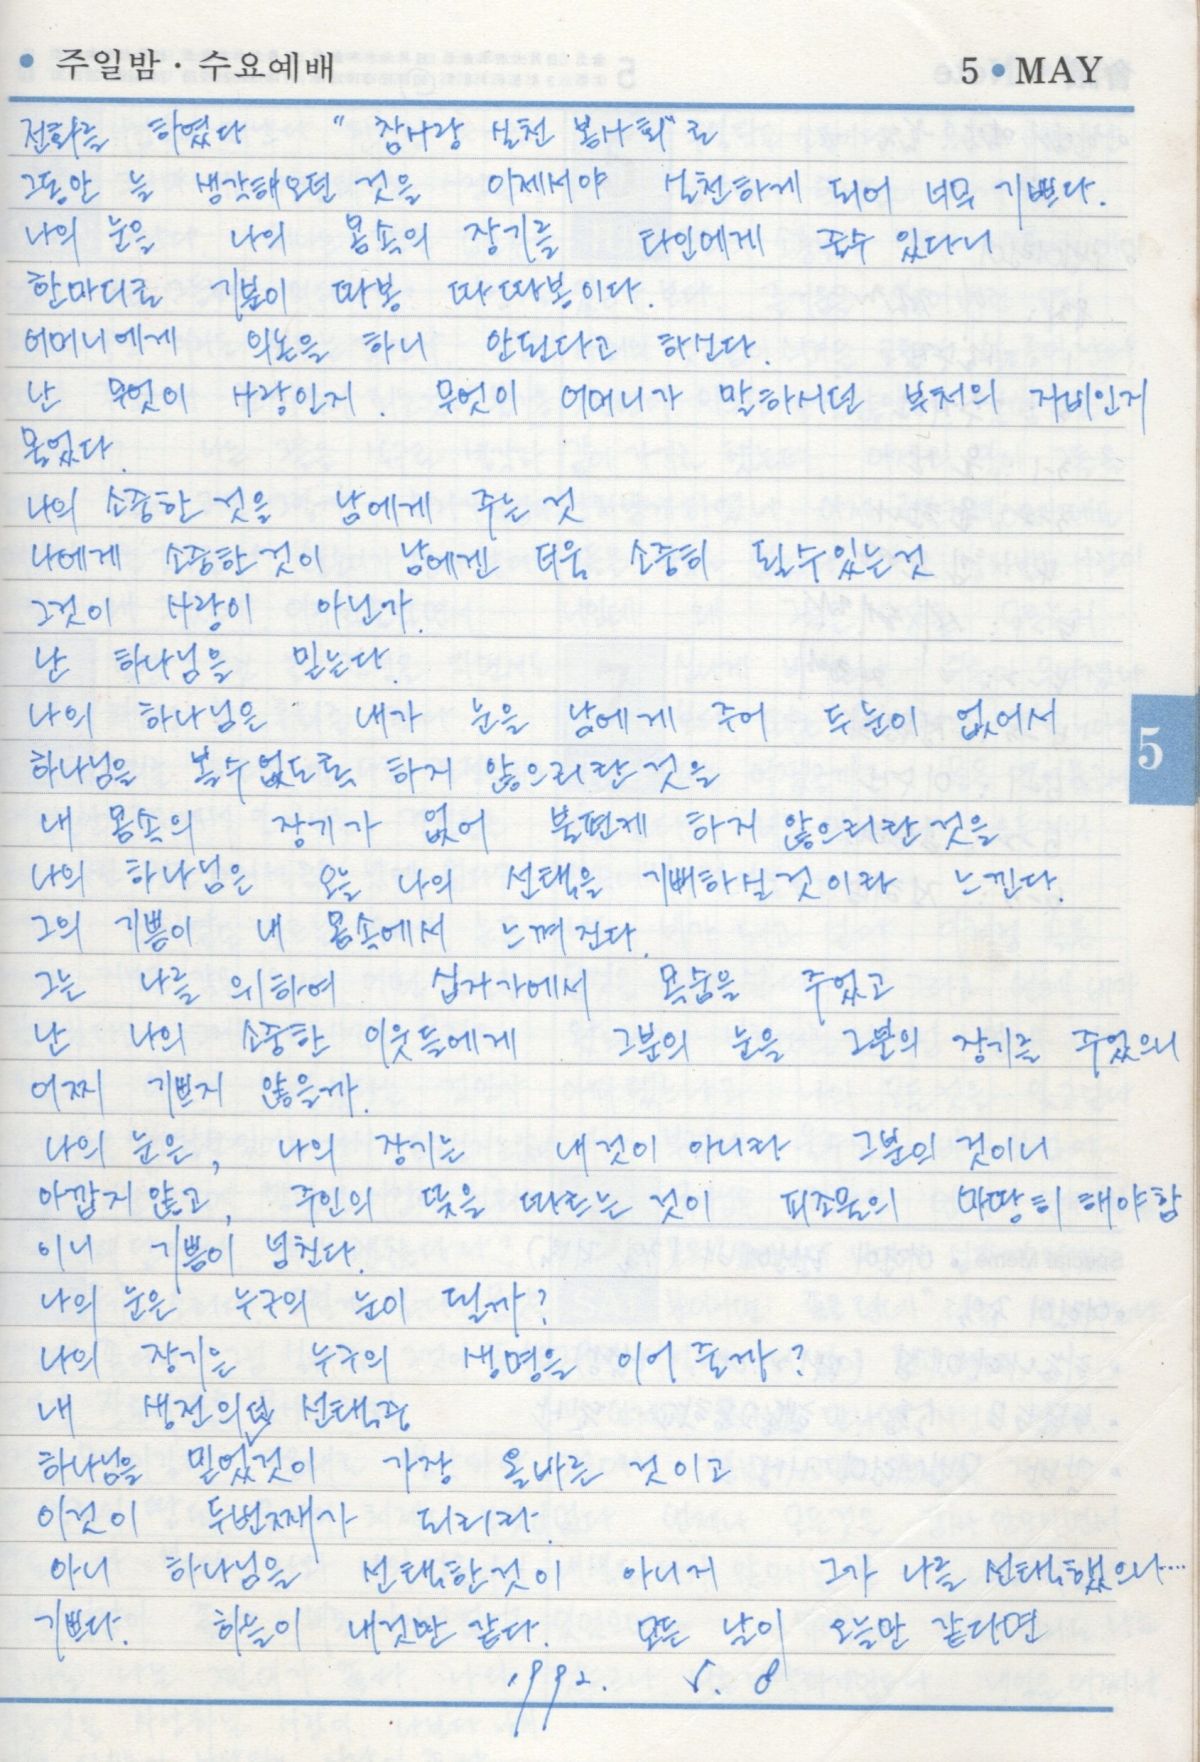 • 주일밤 · 수요예배
5 • MAY
전화를 하였다 "참사랑 실천 봉사회"로
그동안 늘 생각해오던 것을 이제서야 실천하게 되어 너무 기쁘다.
나의 눈을 나의 몸속의 장기를 타인에게 줄수 있다니
한마디로 기분이 따봉 따따봉이다.
어머니에게 의논을 하니 안된다고 하신다.
난 무엇이 사랑인지. 무엇이 어머니가 말하시던 부처의 자비인지
물었다.
나의 소중한 것을 남에게 주는 것
나에게 소중한 것이 남에겐 더욱 소중히 될수있는것
그것이 사랑이 아닌가.
난 하나님을 믿는다.
나의 하나님은 내가 눈을 남에게 주어 두눈이 없어서
하나님을 볼수없도록 하지 않으리란 것을
내 몸속의 장기가 없어 불편케 하지 않으리란 것을
나의 하나님은 오늘 나의 선택을 기뻐하실것이라 느낀다.
그의 기쁨이 내 몸속에서 느껴진다.
그는 나를 위하여 십자가에서 목숨을 주었고
난 나의 소중한 이웃들에게 그분의 눈을 그분의 장기를 주었으니
어찌 기쁘지 않을까.
나의 눈은, 나의 장기는 내것이 아니라 그분의 것이니
아깝지 않고, 주인의 뜻을 따르는 것이 피조물의 마땅히 해야함
이니 기쁨이 넘친다.
나의 눈은 누구의 눈이 될까?
나의 장기은 누구의 생명을 이어줄까?
내 생전의 선택과
하나님을 믿었것이 가장 올바른 것이고
이것이 두번째가 되리라.
아니 하나님을 선택한것이 아니지 그가 나를 선택했으니…
기쁘다. 하늘이 내것만 같다. 모든 날이 오늘만 같다면
1992. 5. 8
5